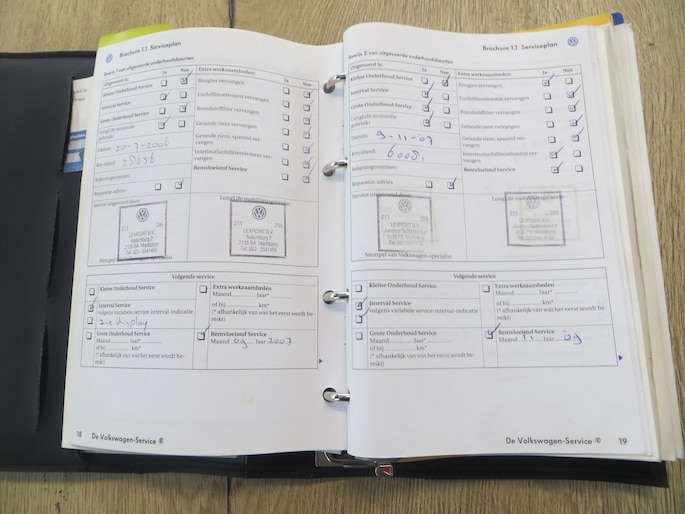 Brochure 1.1 Serviceplan
Bewijs 1 van uitgevoerde onderhoudsbeurten
Uitgevoerd is: Ja Nee
Kleine Onderhoud Service
Interval Service
Grote Onderhoud Service
gebruikt
Datum: 20-7-2006
Km-stand:
Rekeningnummer:
Reparatie-advies
Service uitgevoerd door:
Extra werkzaamheden: Ja Nee
Bougies vervangen
Luchtfilterelement vervangen
Brandstoffilter vervangen
Getande riem vervangen
Getande riem: spanrol vervangen
Interieurluchtfilterelement vervangen
Remvloeistof Service
LEXPOINT B.V.
LEXPOINT B.V.
Stempel van Volkswagen-specialist
Volgende service
Kleine Onderhoud Service
Interval Service
volgens variabele service-interval-indicatie
zie display
Grote Onderhoud Service
Maand jaar*
of bij km*
(* afhankelijk van wat het eerst wordt bereikt)
Extra werkzaamheden
Maand jaar*
of bij km*
(* afhankelijk van wat het eerst wordt bereikt)
Remvloeistof Service
Maand 09 jaar 2007
18 De Volkswagen-Service ®
Brochure 1.1 Serviceplan
Bewijs 2 van uitgevoerde onderhoudsbeurten
Uitgevoerd is: Ja Nee
Kleine Onderhoud Service
Interval Service
Grote Onderhoud Service
gebruikt
Datum: 9-11-07
Km-stand:
Rekeningnummer:
Reparatie-advies
Service uitgevoerd door:
Extra werkzaamheden: Ja Nee
Bougies vervangen
Luchtfilterelement vervangen
Brandstoffilter vervangen
Getande riem vervangen
Getande riem: spanrol vervangen
Interieurluchtfilterelement vervangen
Remvloeistof Service
LEXPOINT B.V.
LEXPOINT B.V.
Stempel van Volkswagen-specialist
Volgende service
Kleine Onderhoud Service
Interval Service
volgens variabele service-interval-indicatie
Grote Onderhoud Service
Maand jaar*
of bij km*
(* afhankelijk van wat het eerst wordt bereikt)
Extra werkzaamheden
Maand jaar*
of bij km*
(* afhankelijk van wat het eerst wordt bereikt)
Remvloeistof Service
Maand 11 jaar 09
De Volkswagen-Service ® 19